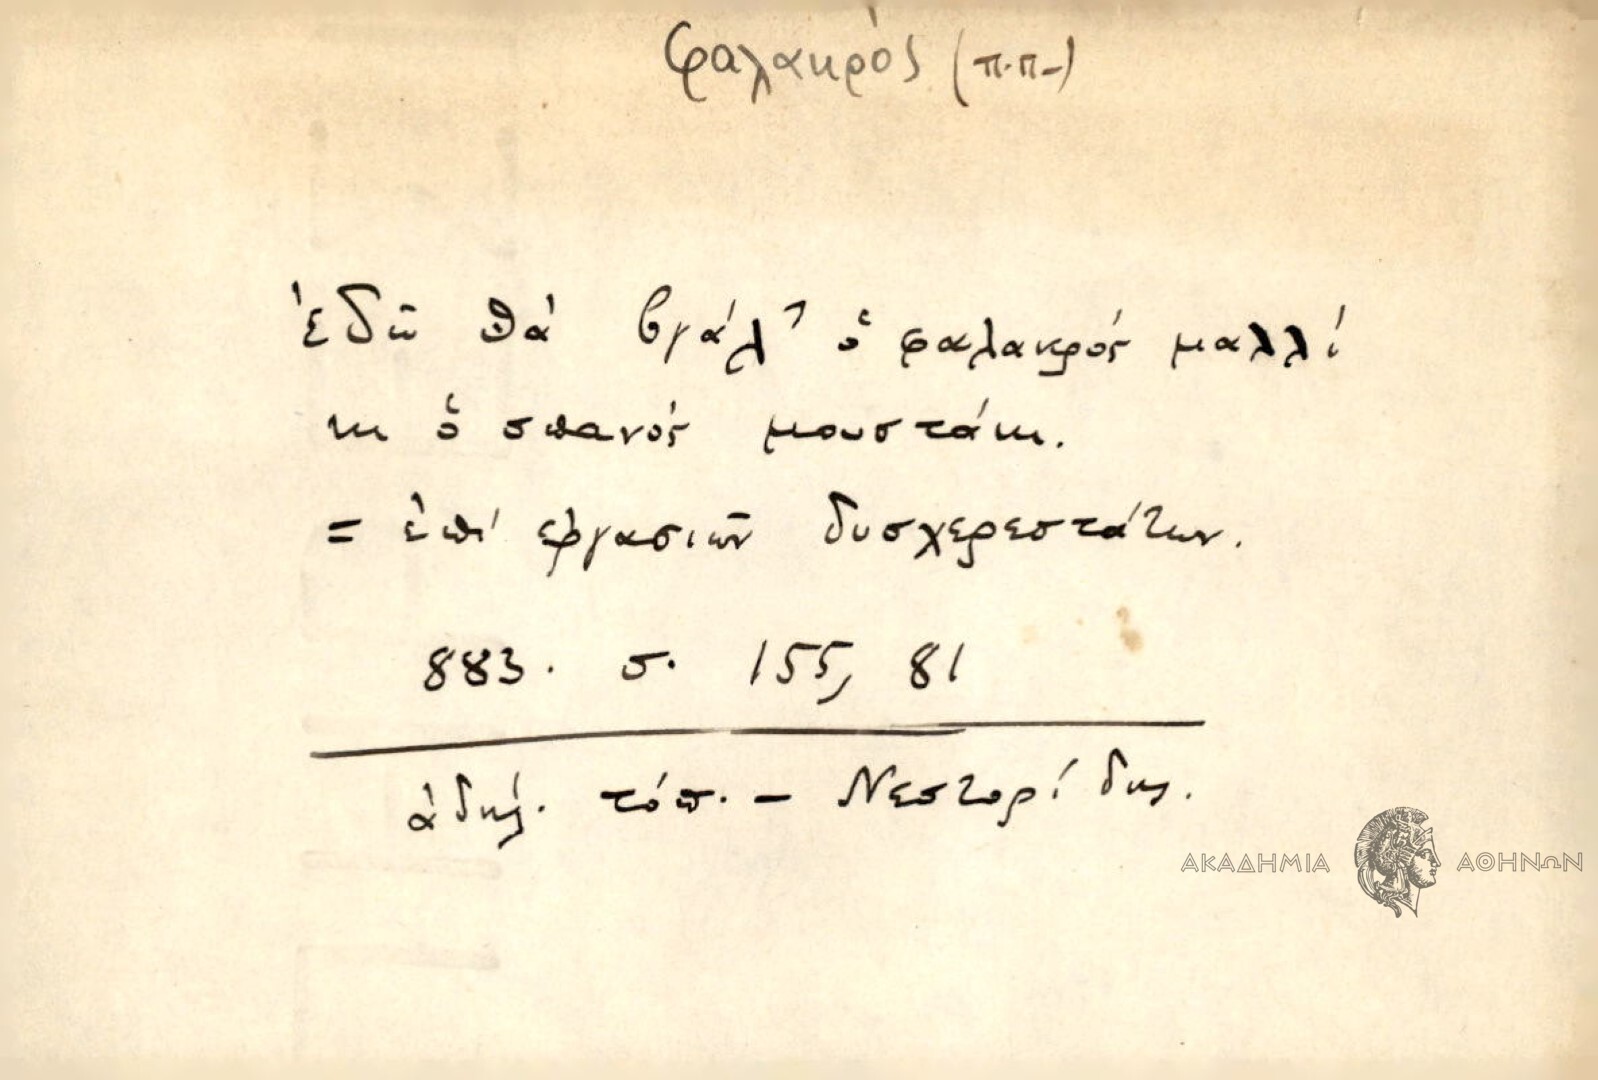 φαλακρός (π.π-)
Ἐδῶ θά βγάλ' ὁ φαλακρός μαλλί
κι ὁ σπανός μουστάκι.
= ἐπί ἐργασιῶν δυσχερεστάτων.
883. σ. 155, 81
ἀδήλ. τόπ. - Νεστορίδης.
ΑΚΑΔΗΜΙΑ ΑΘΗΝΩΝ